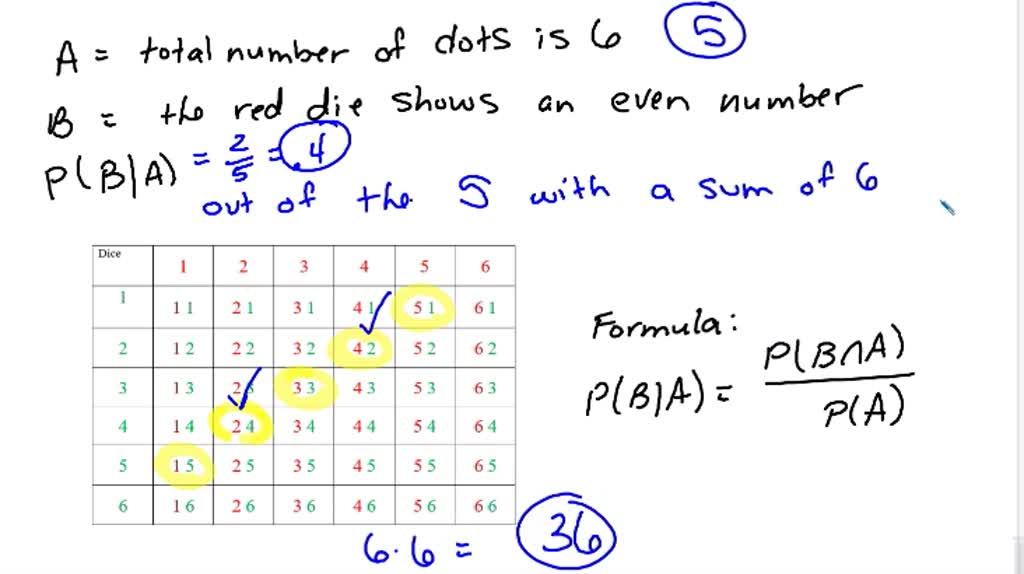 A = total number of dots is 6 5
B = the red die shows an even number
P(B|A) = 2/5 = .4
out of the 5 with a sum of 6
Dice 1 2 3 4 5 6
1 1 1 2 1 3 1 4 1 5 1 6 1
2 1 2 2 2 3 2 4 2 5 2 6 2
3 1 3 2 3 3 3 4 3 5 3 6 3
4 1 4 2 4 3 4 4 4 5 4 6 4
5 1 5 2 5 3 5 4 5 5 5 6 5
6 1 6 2 6 3 6 4 6 5 6 6 6
6·6 = 36
Formula:
P(B|A) = P(B∩A)
P(A)